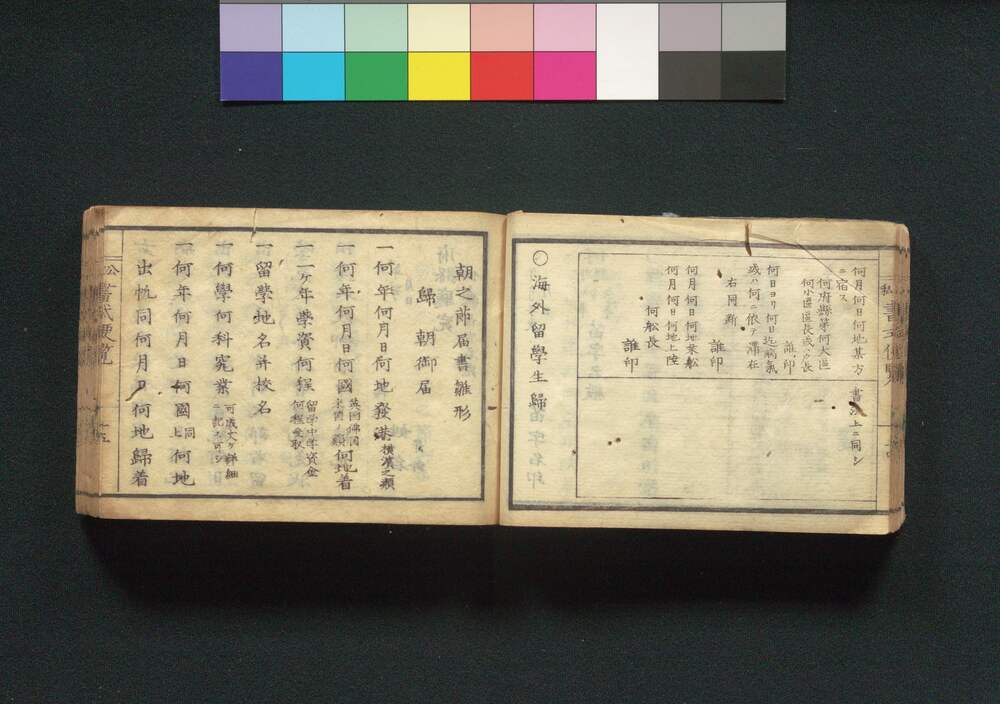 何月何日何地某方
ニ宿ス
何府縣第何大區
何小區區長或ハ戸長
誰印
何日ヨリ何日迄病氣
或ハ何ニ依テ滞在
右同斷
誰印
何月何日何地乗船
何月何日何地上陸
何船長
誰印
書法上ニ同シ
○海外留學生歸
朝之節届書雛形
歸朝御届
一何年何月日何地發港横濱之類
一何年何月日何國英国佛国米国之類何地着
一一ヶ年學資何程留学中年資金何程受取
一留學地名并校名
一何學何科究業可成丈ケ詳細ニ記スヘシ
一何年何月日何國同上何地
出帆同何月日何地歸着
公
書式便覧